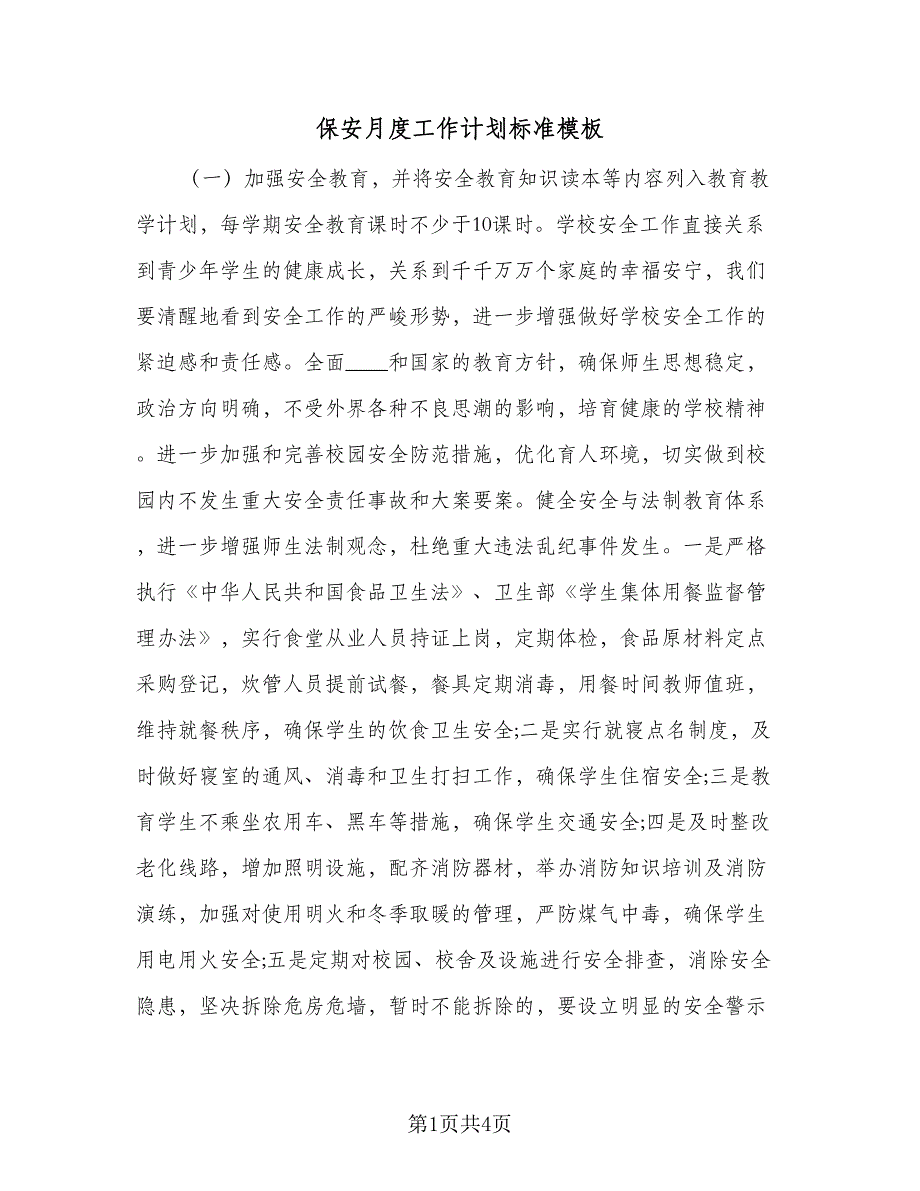 保安月度工作计划标准模板
（一）加强安全教育，并将安全教育知识读本等内容列入教育教
学计划，每学期安全教育课时不少于10课时。学校安全工作直接关系
到青少年学生的健康成长，关系到千千万万个家庭的幸福安宁，我们
要清醒地看到安全工作的严峻形势，进一步增强做好学校安全工作的
紧迫感和责任感。全面____和国家的教育方针，确保师生思想稳定，
政治方向明确，不受外界各种不良思潮的影响，培育健康的学校精神
。进一步加强和完善校园安全防范措施，优化育人环境，切实做到校
园内不发生重大安全责任事故和大案要案。健全安全与法制教育体系
，进一步增强师生法制观念，杜绝重大违法乱纪事件发生。一是严格
执行《中华人民共和国食品卫生法》、卫生部《学生集体用餐监督管
理办法》，实行食堂从业人员持证上岗，定期体检，食品原材料定点
采购登记，炊管人员提前试餐，餐具定期消毒，用餐时间教师值班，
维持就餐秩序，确保学生的饮食卫生安全;二是实行就寝点名制度，及
时做好寝室的通风、消毒和卫生打扫工作，确保学生住宿安全;三是教
育学生不乘坐农用车、黑车等措施，确保学生交通安全;四是及时整改
老化线路，增加照明设施，配齐消防器材，举办消防知识培训及消防
演练，加强对使用明火和冬季取暖的管理，严防煤气中毒，确保学生
用电用火安全;五是定期对校园、校舍及设施进行安全排查，消除安全
隐患，坚决拆除危房危墙，暂时不能拆除的，要设立明显的安全警示
第1页共4页